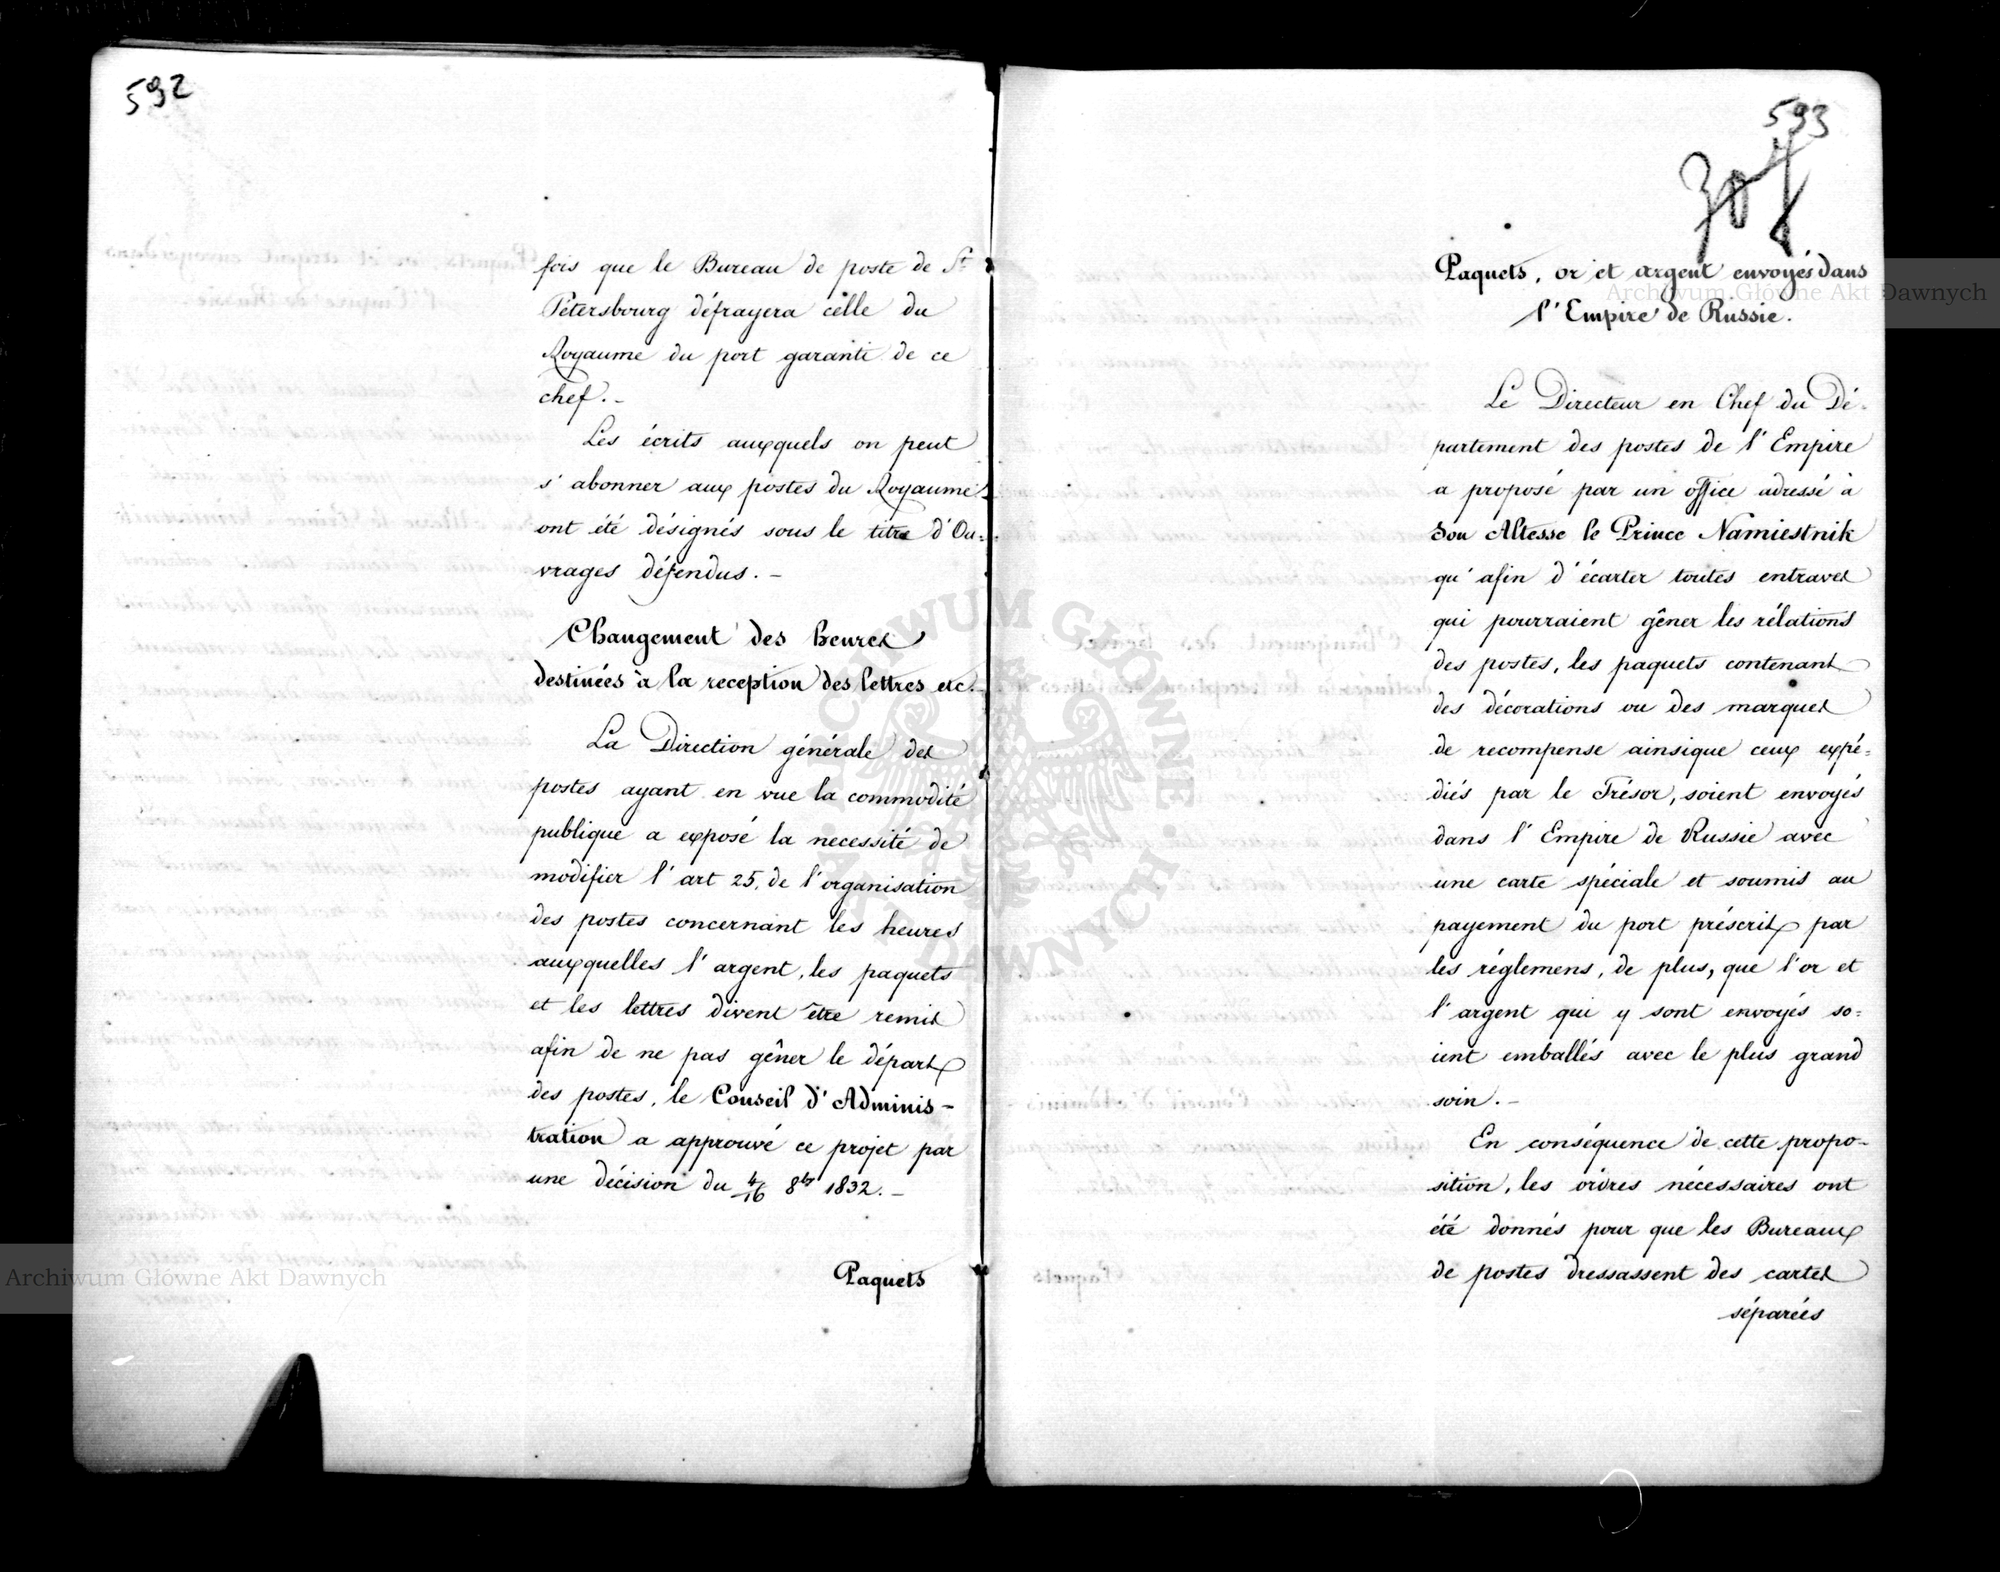 592
fois que le Bureau de poste de St
Pétersbourg défrayera celle du
Royaume du port garanti de ce
chef. -
Les écrits auxquels on peut
s'abonner aux postes du Royaume
ont été désignés sous le titre d'Ou-
vrages défendus. -
Changement des heures
destinées à la reception des lettres etc. -
La Direction générale des
postes ayant en vue la commodité
publique a exposé la necessité de
modifier l'art 25, de l'organisation
des postes concernant les heures
auxquelles l'argent, les paquets
et les lettres divent être remis
afin de ne pas gêner le départ
des postes, le Conseil d'Adminis-
tration a approuvé ce projet par
une décision du 4/16 8br 1832. -
Paquets
593
Paquets, or et argent envoyés dans
l'Empire de Russie.
Le Directeur en Chef du Dé-
partement des postes de l'Empire
a proposé par un office adressé à
Son Altesse le Prince Namiestnik
qu'afin d'écarter toutes entraves
qui pourraient gêner les rélations
des postes, les paquets contenant
des décorations ou des marques
de recompense ainsique ceux expé-
diés par le Trésor, soient envoyés
dans l'Empire de Russie avec
une carte spéciale et soumis au
payement du port préscrit par
les réglemens, de plus, que l'or et
l'argent qui y sont envoyés so-
ient emballés avec le plus grand
soin. -
En conséquence de cette propo-
sition, les ordres nécessaires ont
été donnés pour que les Bureaux
de postes dressassent des cartes
séparées
Archiwum Główne Akt Dawnych
Archiwum Główne Akt Dawnych
ARCHIWUM GŁÓWNE AKT DAWNYCH